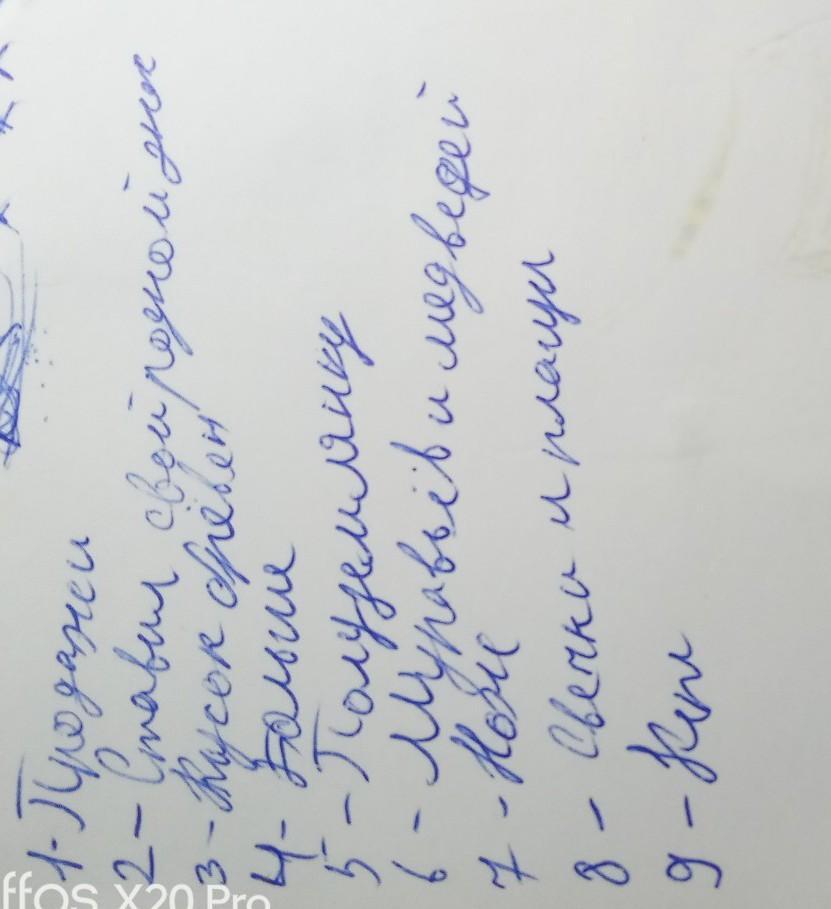 1- Продажи
2 - Ставил свой родной знак
3 - Кусок брёвен
4 - Больше
5 - Полуземлянку
6 - Муравьёв и медведей
7 - Нож
8 - Свечки и плащи
9 -
ffos X20 Pro